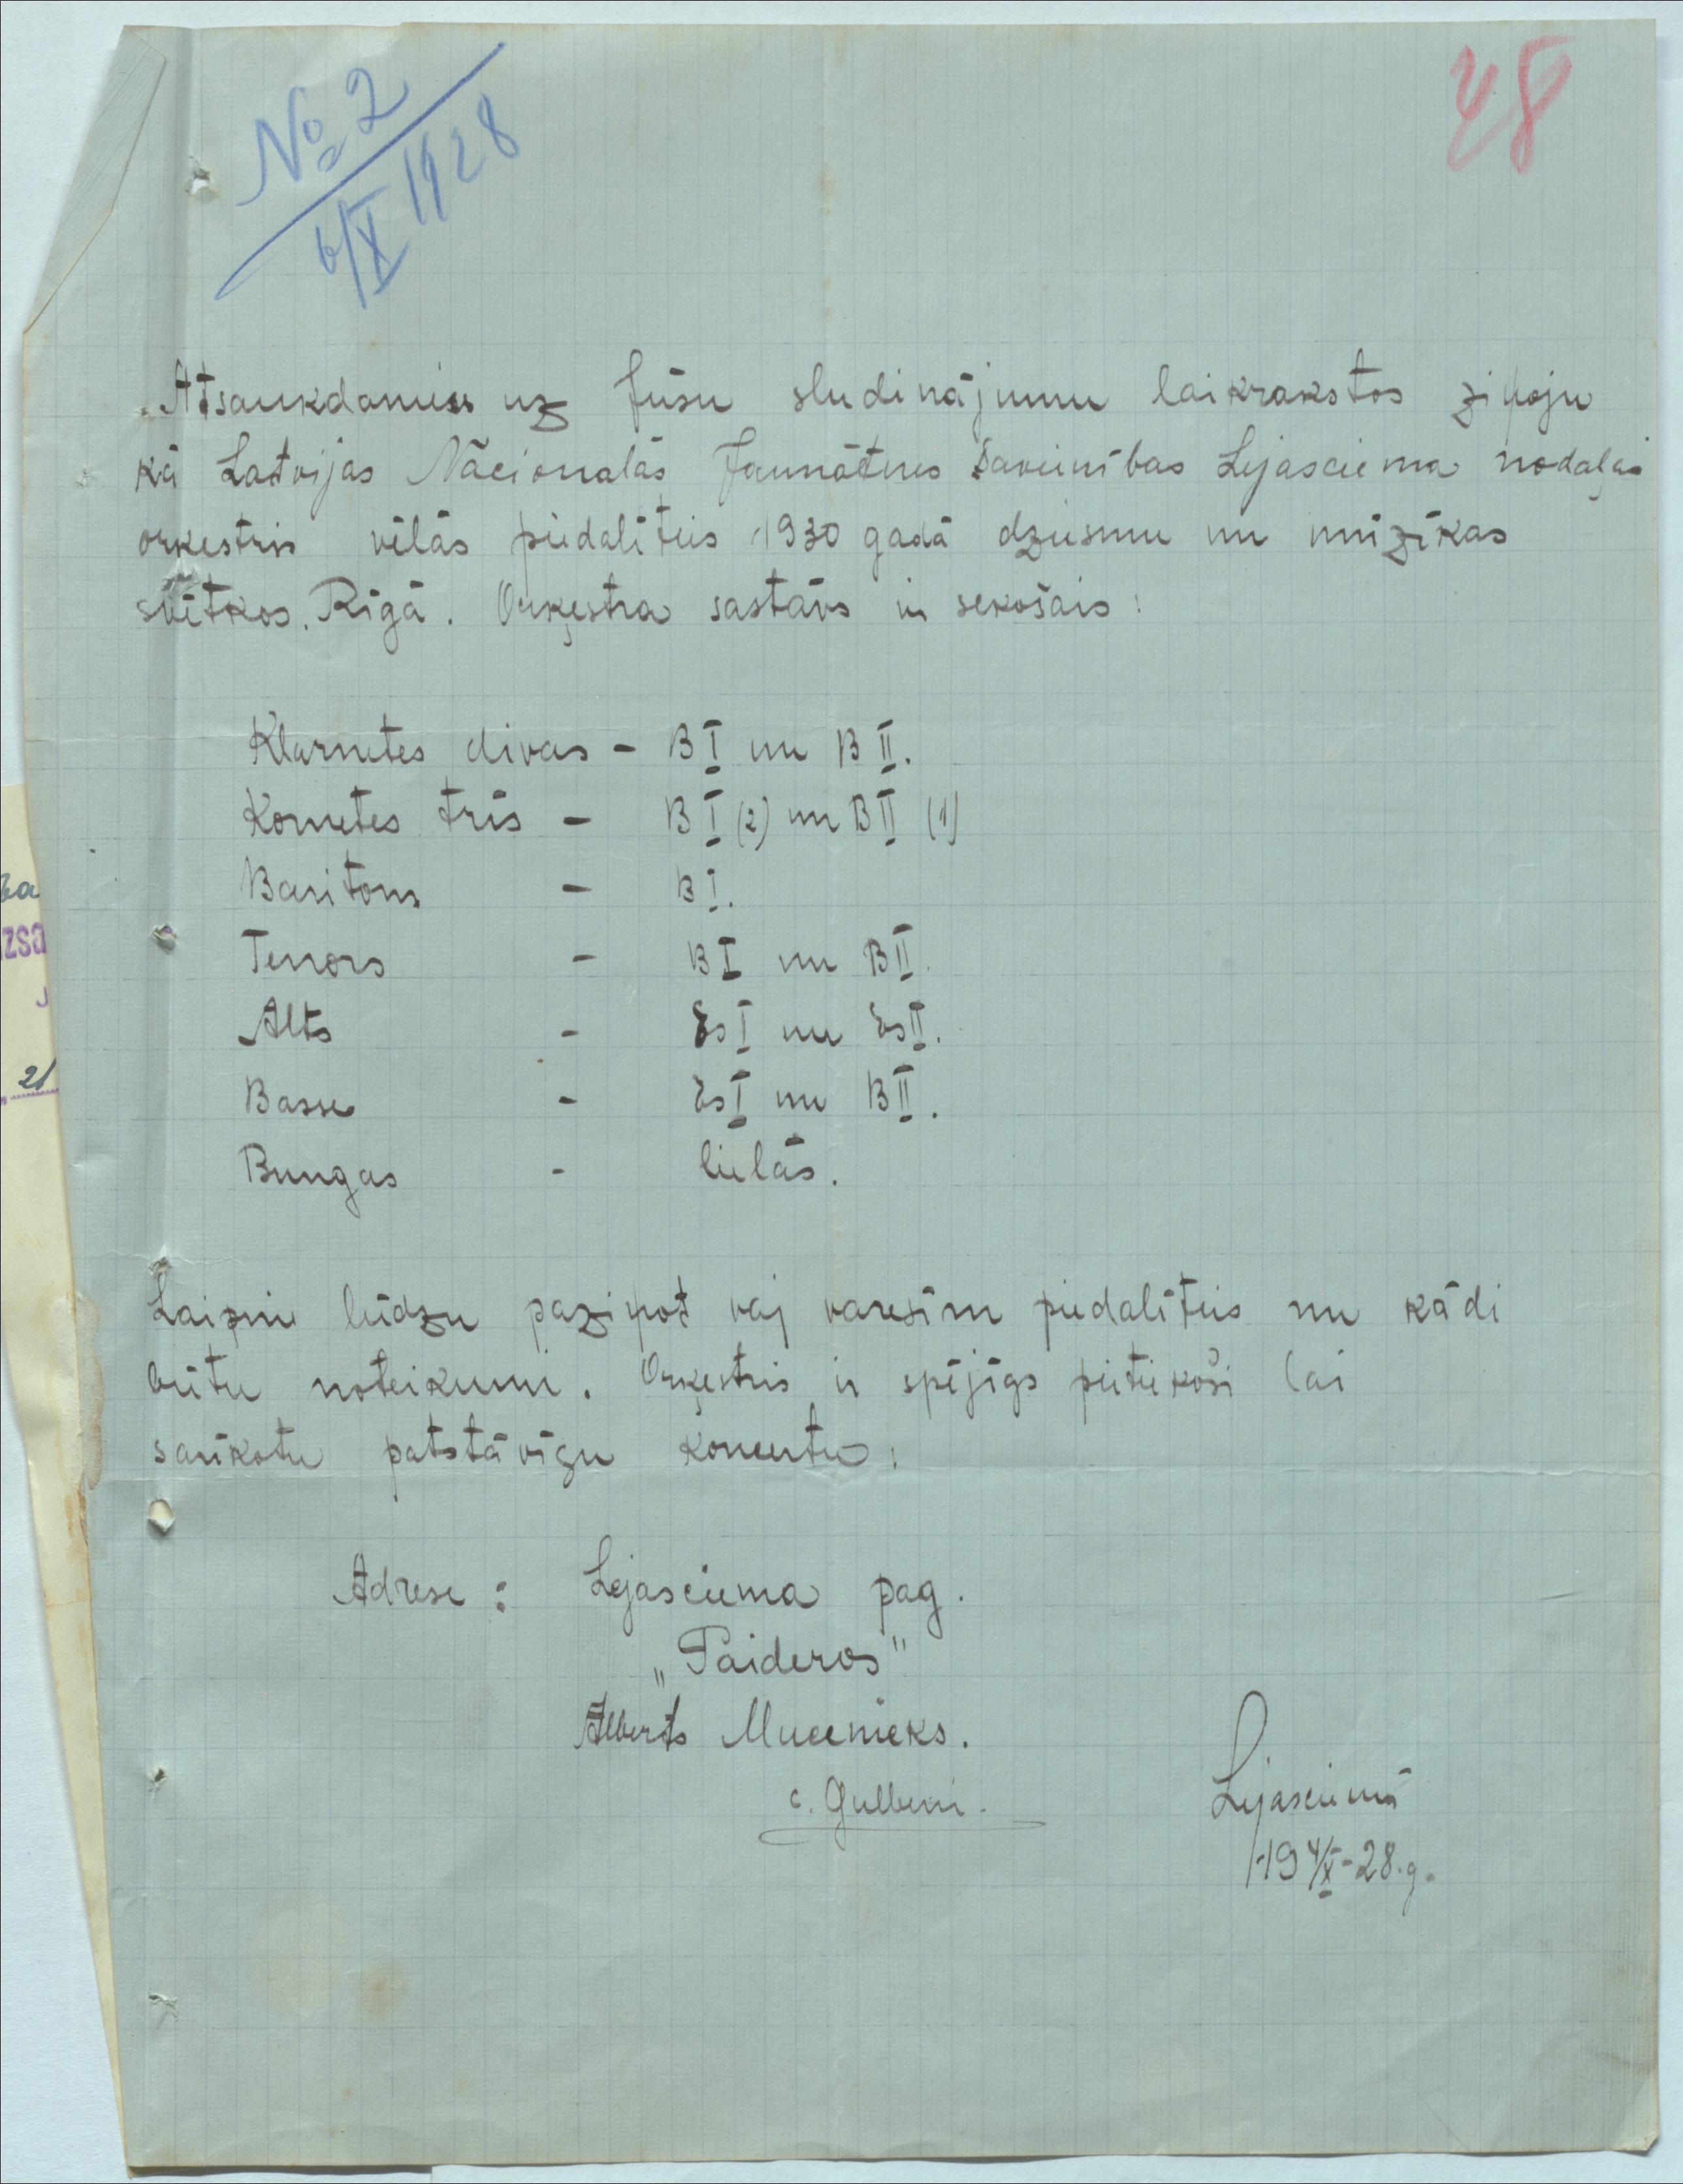 № 2
6/X 1928
48
Atsaukdamies uz Jūsu sludinājumu laikrakstos ziņoju
kā Latvijas Nācionalās Jaunātnes Savienības Lejasciema nodaļas
orķestris vēlās piedalīties 1930 gadā dziesmu un mūzīkas
svētkos. Rīgā. Orķestra sastāvs ir sekošais:
Klarnetes divas - B I un B II.
Kornetes trīs - B I (2) un B II (1)
Baritons - B I.
Tenors - B I un B II.
Alts - Es I un Es II.
Basse - Es I un B II.
Bungas - lielās.
Laipni lūdzu paziņot vaj varesīm piedalīties un kādi
būtu noteikumi. Orķestris ir spējīgs pietiekoši lai
sarīkotu patstāvīgu koncertu.
Adrese: Lejasciema pag.
„Paideros"
Alberts Mucenieks.
c. Gulbeni.
Lejasciemā
19 4/X-28.g.
ba
izsa
J
21